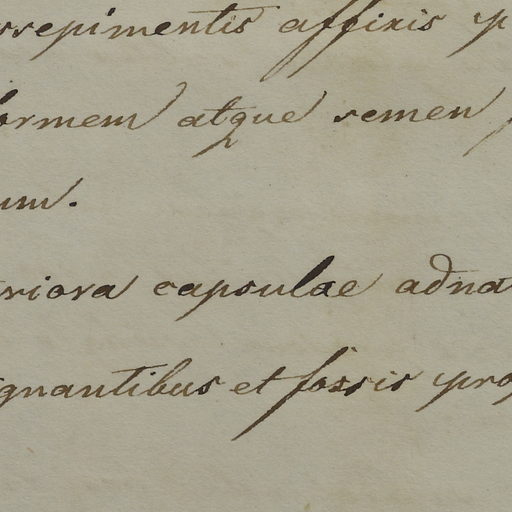 rrepimentis affixis p
formem atque semen
um.
riora capsulae adna
gnantibus et fossis pro